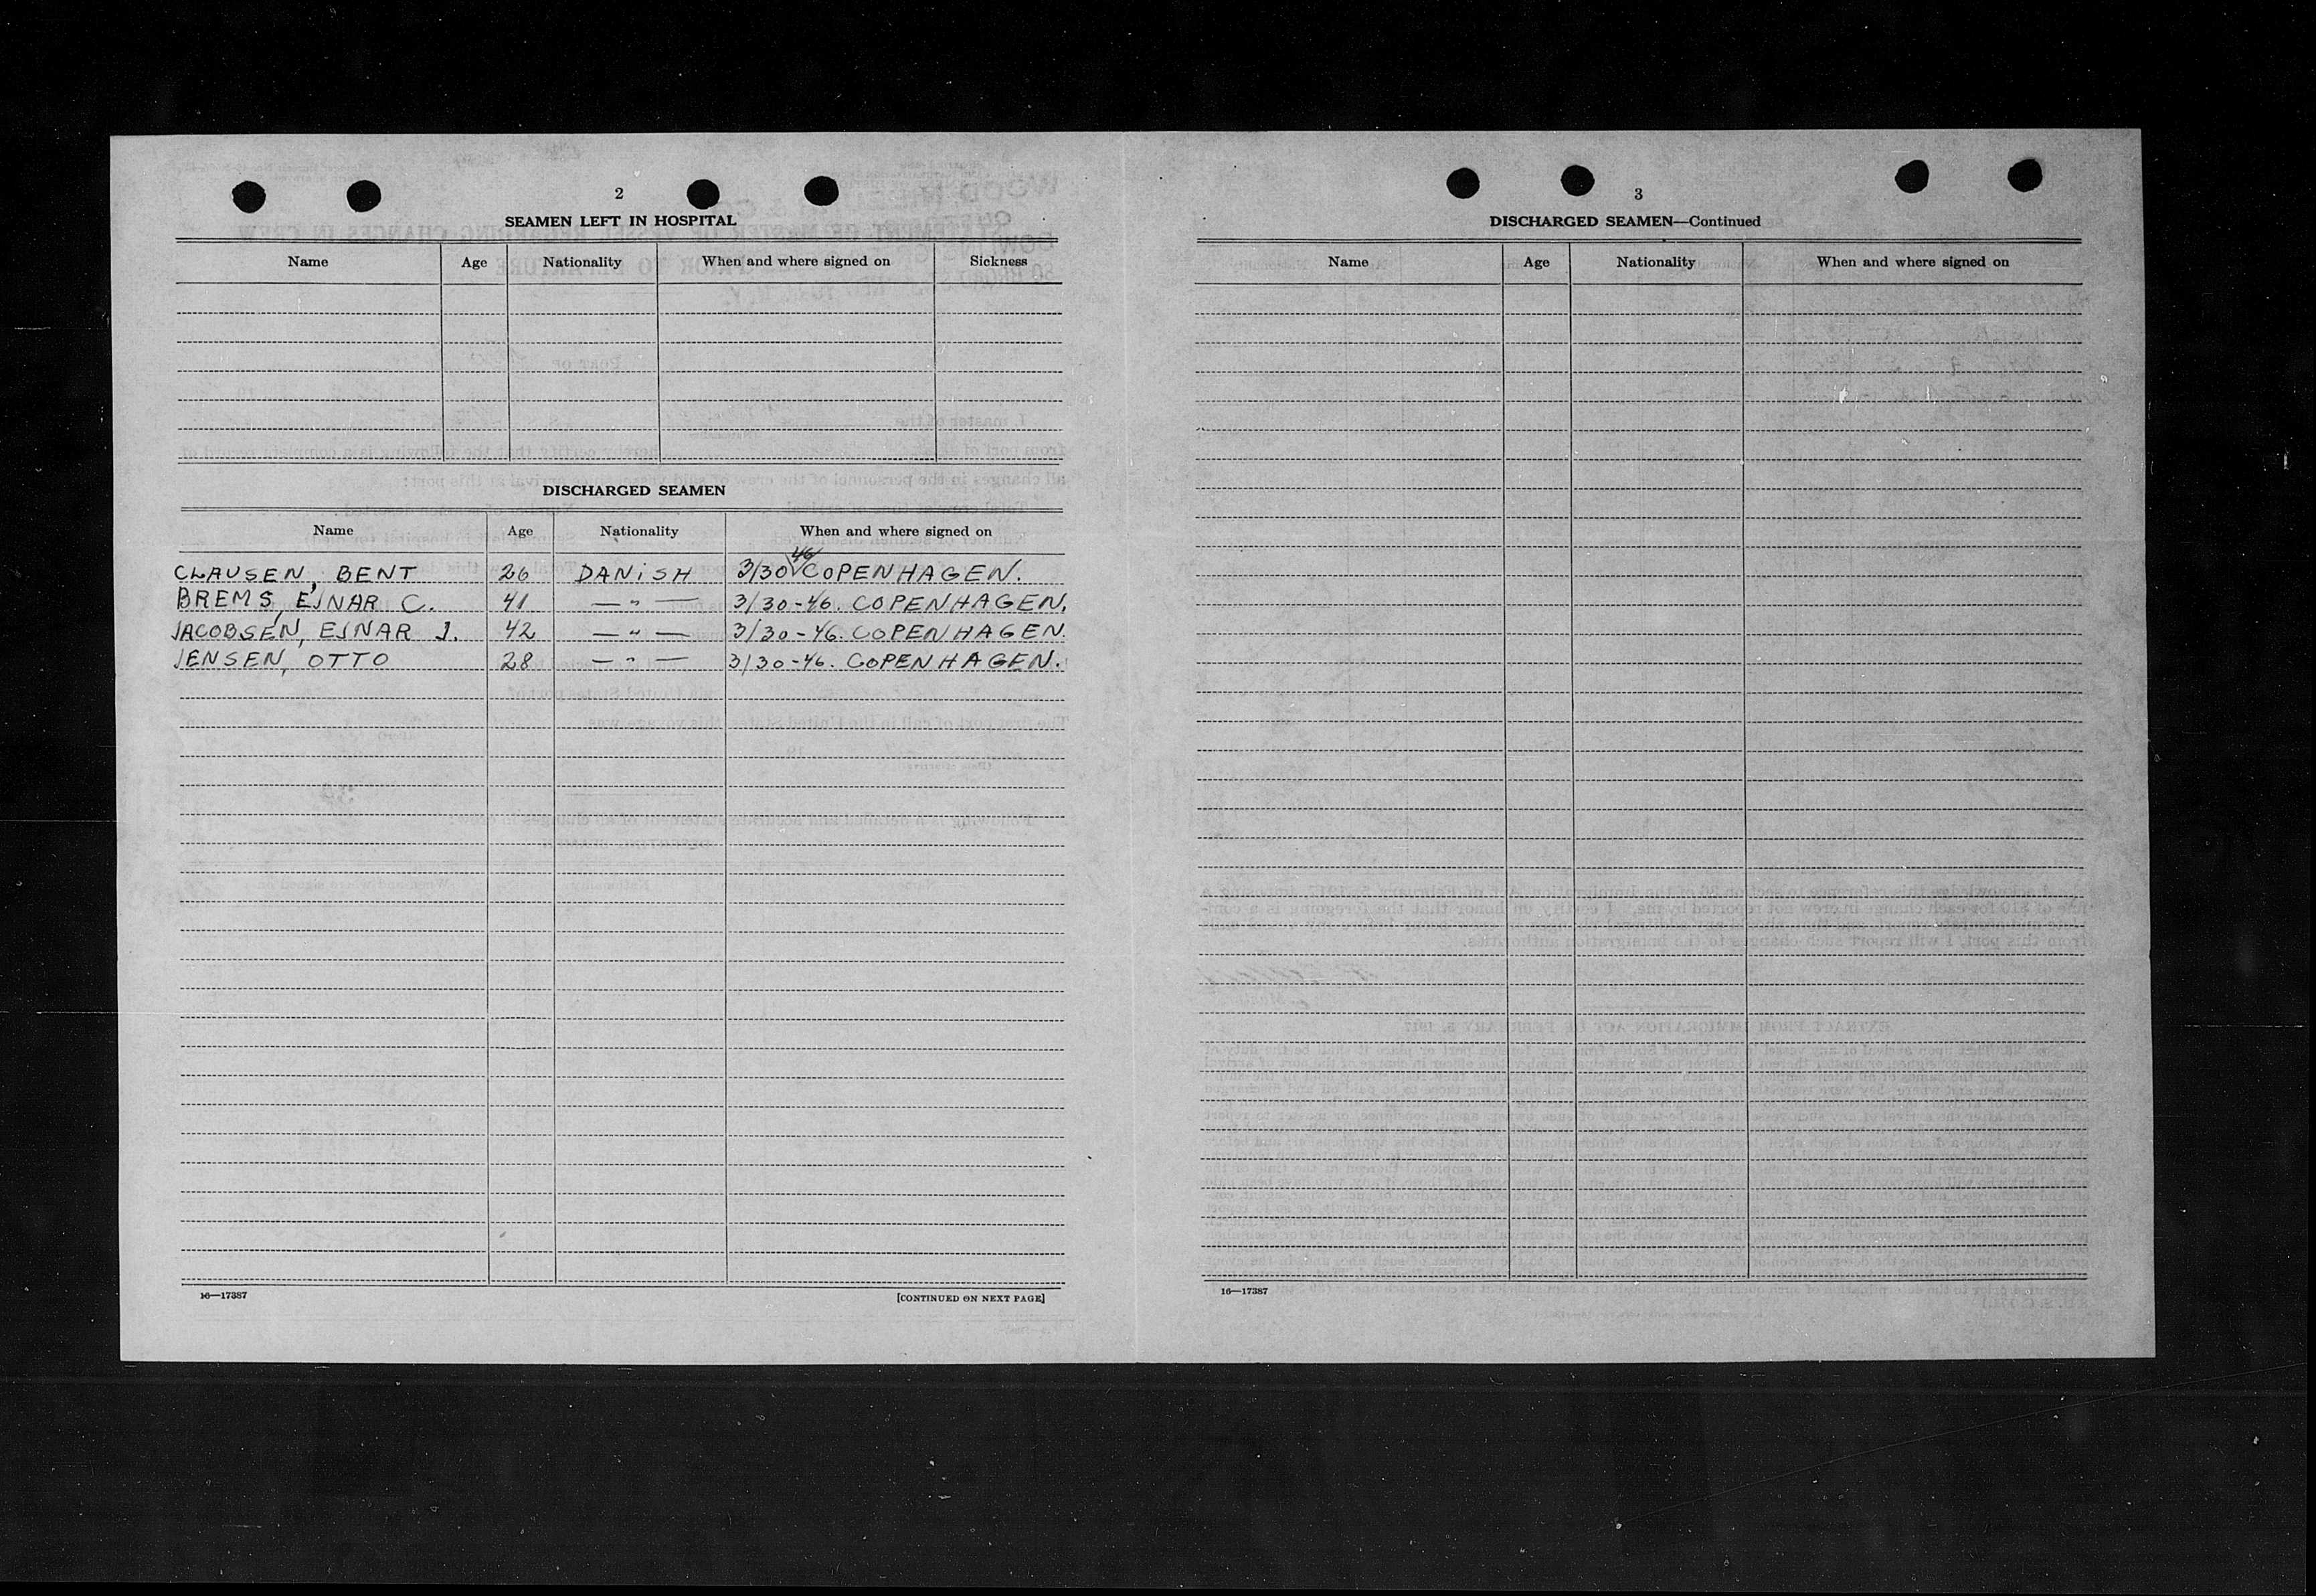 2
SEAMEN LEFT IN HOSPITAL
Name Age Nationality When and where signed on Sickness
DISCHARGED SEAMEN
Name Age Nationality When and where signed on
CLAUSEN, BENT 26 DANISH 3/30 46 COPENHAGEN.
BREMS, EJNAR C. 41 —"— 3/30-46. COPENHAGEN.
JACOBSEN, EJNAR J. 42 —"— 3/30-46. COPENHAGEN.
JENSEN, OTTO 28 —"— 3/30-46. COPENHAGEN.
16—17387 [CONTINUED ON NEXT PAGE]
3
DISCHARGED SEAMEN—Continued
Name Age Nationality When and where signed on
16—17387